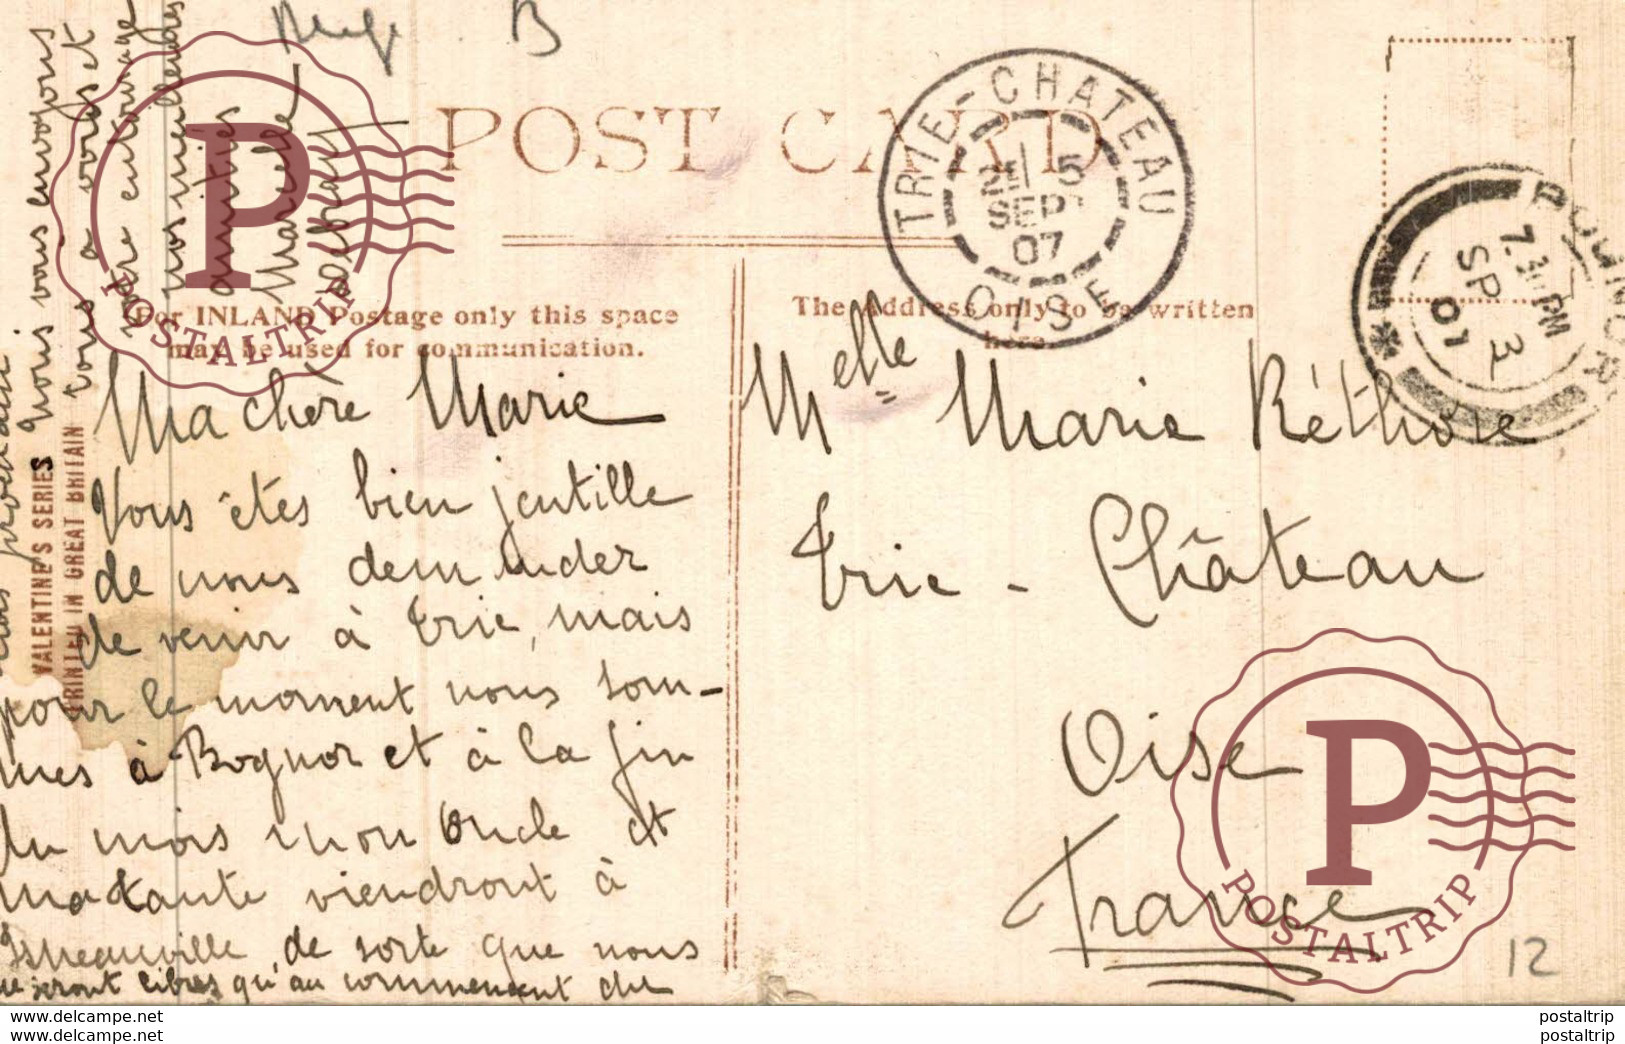 B
POST CARD
TRIE-CHATEAU
5
SEPT
07
OISE
BOGNOR
7.30 PM
SP 3
07
For INLAND Postage only this space
may be used for communication.
The Address only to be written
here.
Ma chère Marie
Vous êtes bien jentille
de nous demander
de venir à Trie, mais
pour le moment nous som-
mes à Bognor et à la fin
du mois mon oncle et
ma tante viendront à
de sorte que nous
ne seront libres qu'au commencent du
mois prochain
Nous vous envoyons
tous a vous et
votre entourage
nos meilleures
amitiés
Marcelle
VALENTINE'S SERIES
PRINTED IN GREAT BRITAIN
Melle Marie Réthore
Trie - Château
Oise
France
12
P
POSTALTRIP
P
POSTALTRIP
www.delcampe.net
www.delcampe.net
postaltrip
postaltrip